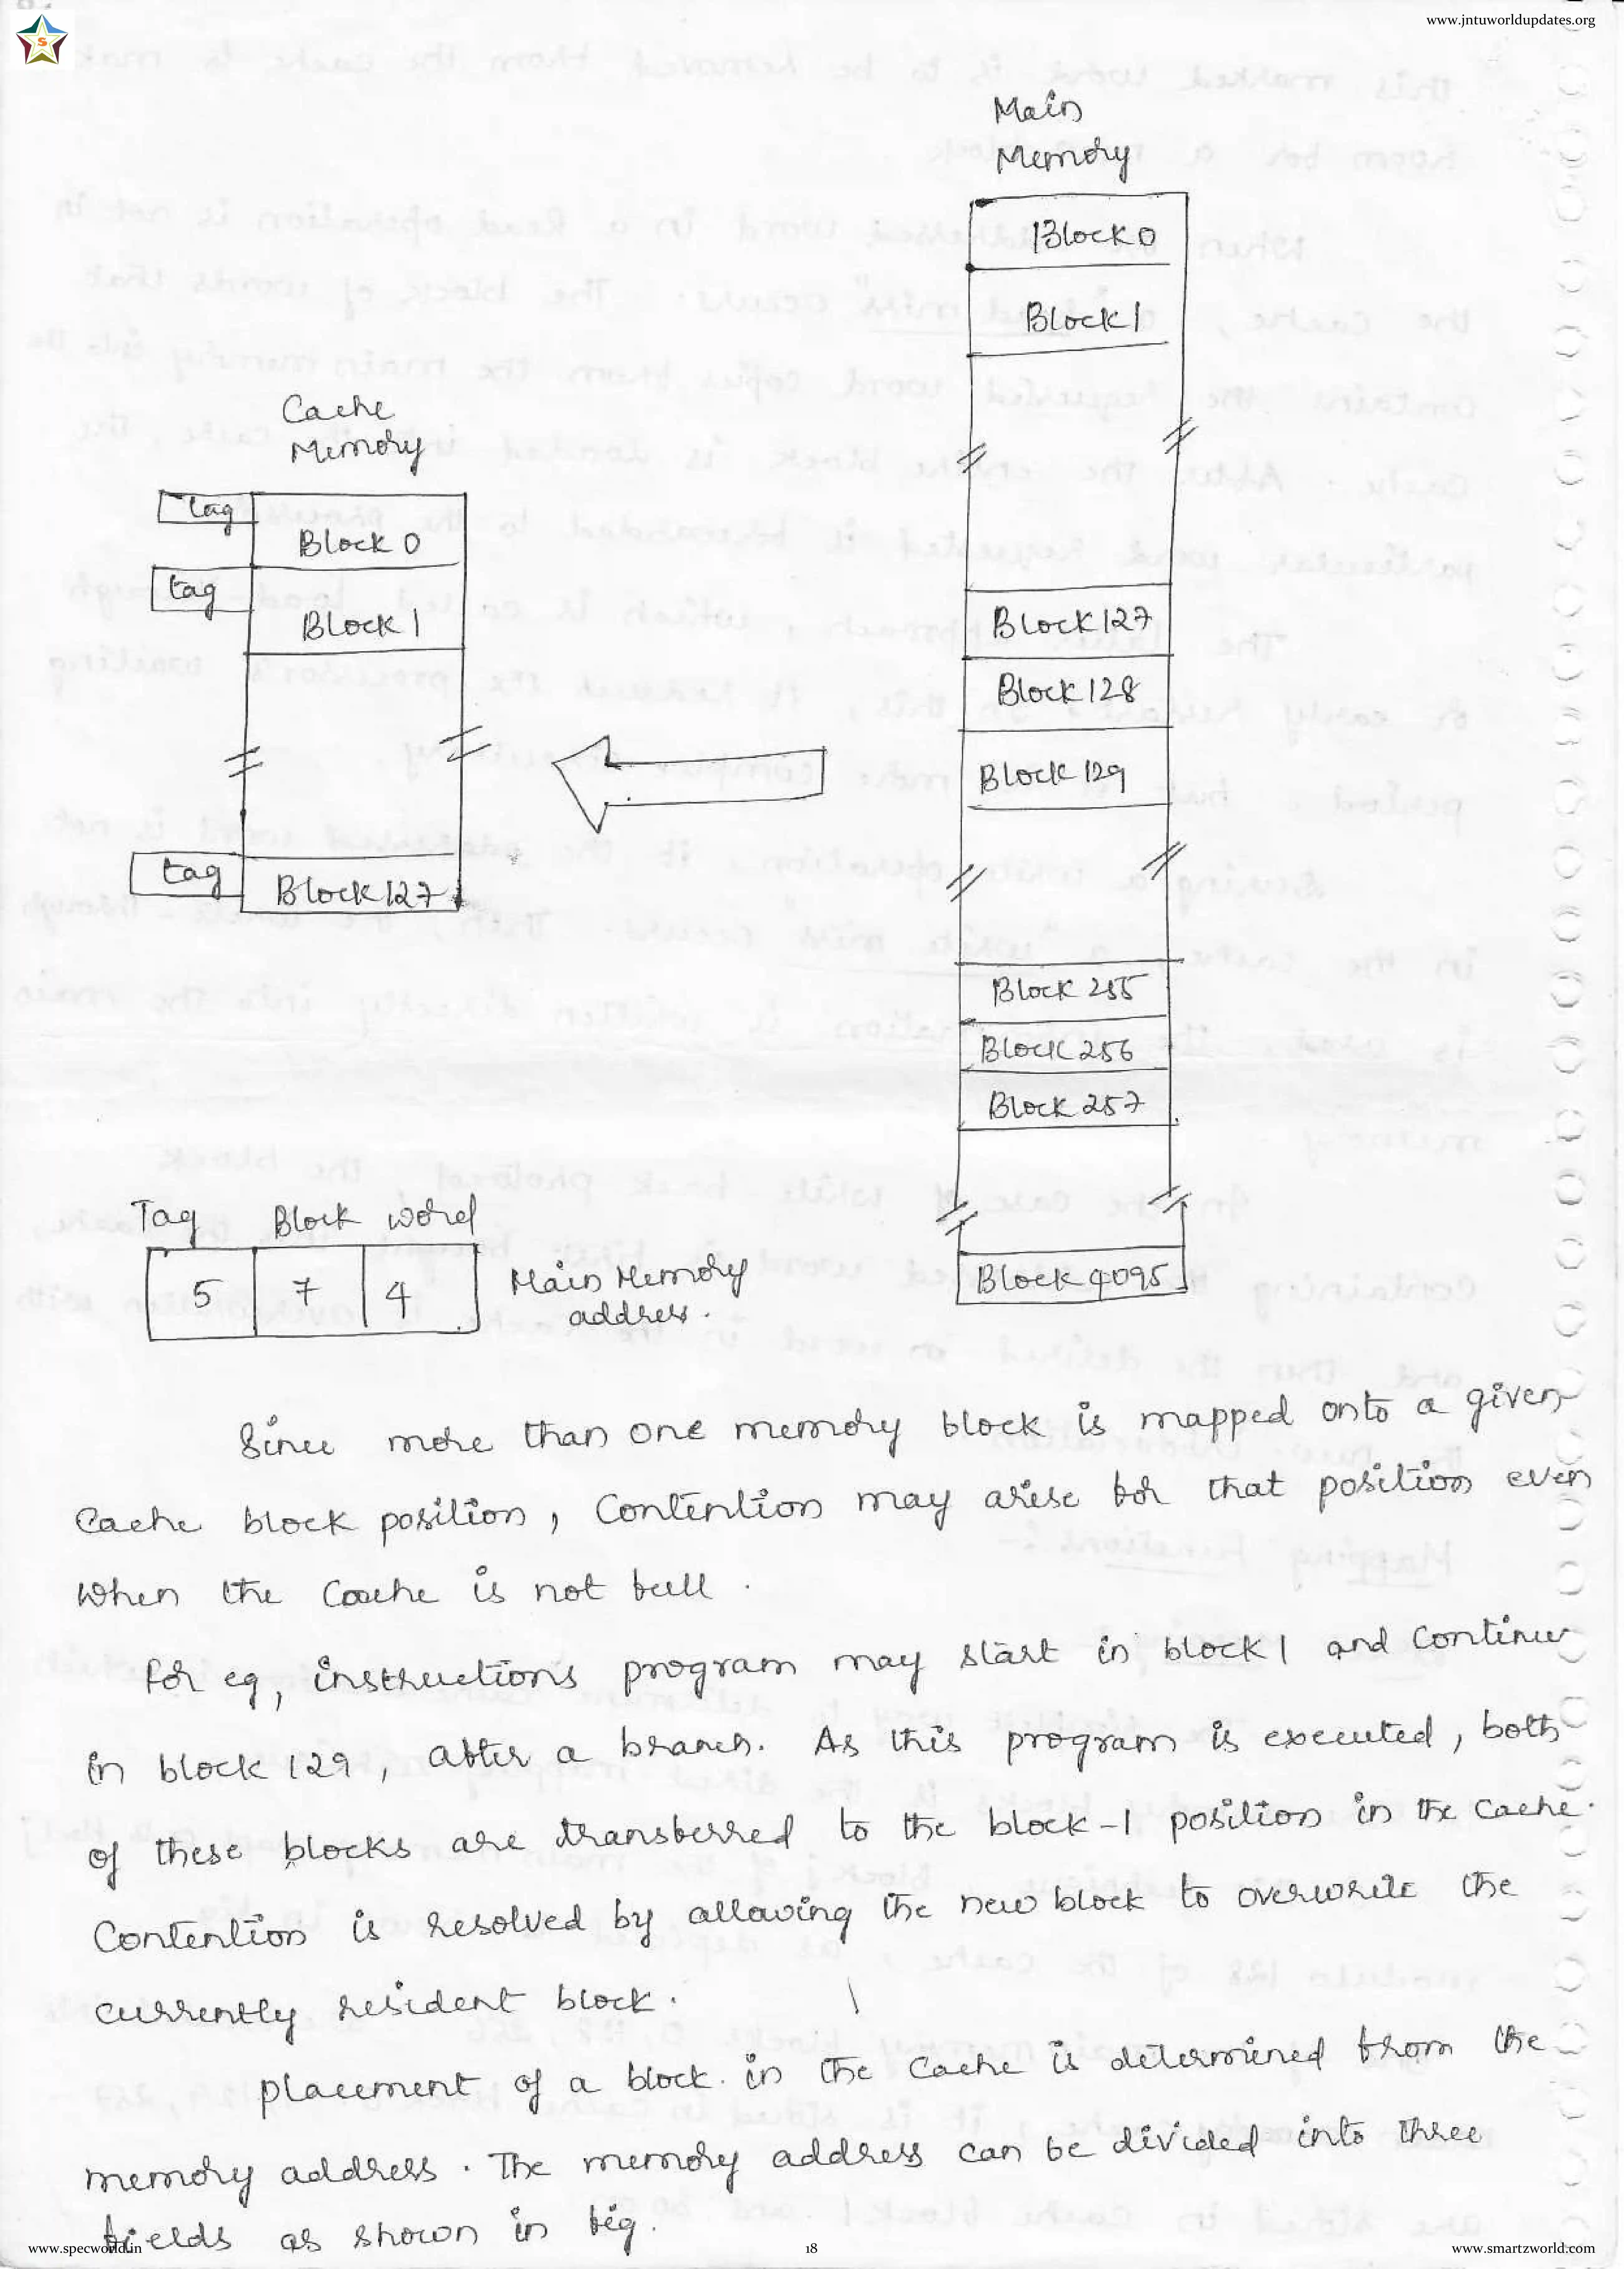 www.jntuworldupdates.org
S
Main
Memory
Block 0
Block 1
Cache
Memory
tag
Block 0
tag
Block 1
Block 127
Block 128
Block 129
tag
Block 127
Block 255
Block 256
Block 257
Tag Block word
5 7 4
Main Memory
address.
Block 4095
Since more than one memory block is mapped onto a given
Cache block position, Contention may arise for that position even
when the Cache is not full.
for eg, instructions program may start in block 1 and Continue
in block 129, after a branch. As this program is executed, both
of these blocks are transferred to the block-1 position in the Cache.
Contention is resolved by allowing the new block to overwrite the
currently resident block.
placement of a block in the Cache is determined from the
memory address. The memory address can be divided into three
fields as shown in fig.
www.specworld.in
18
www.smartzworld.com